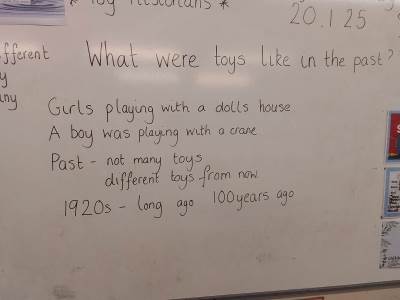 * Toy Historians *
20.1.25
different
What were toys like in the past?
Girls playing with a dolls house
A boy was playing with a crane
Past - not many toys
different toys from now
1920s - long ago 100 years ago